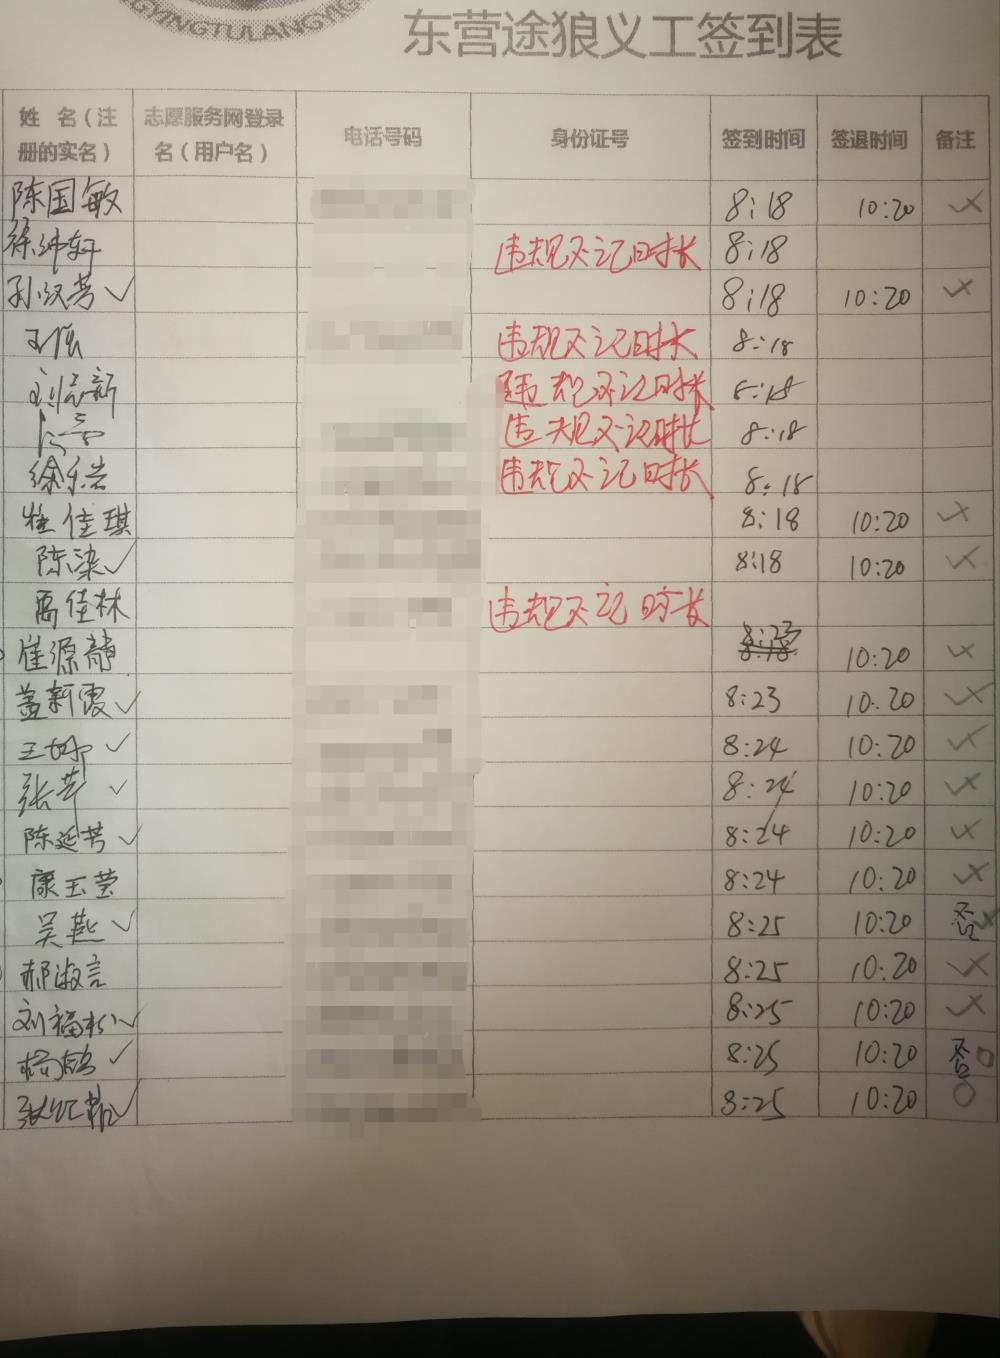 GYINGTULANGYIG
东营途狼义工签到表
姓 名（注册的实名） 志愿服务网登录名（用户名） 电话号码 身份证号 签到时间 签退时间 备注
陈国敏 8:18 10:20
违规不记时长 8:18
8:18 10:20
违规不记时长 8:18
违规不记时长 8:18
违规不记时长 8:18
徐乐岩 违规不记时长 8:18
杜佳琪 8:18 10:20
陈染 8:18 10:20
禹佳林 违规不记时长
崔源静 8:23 10:20
盖新霞 8:23 10:20
8:24 10:20
张芹 8:24 10:20
陈延芳 8:24 10:20
康玉莹 8:24 10:20
吴燕 8:25 10:20 否
郝淑言 8:25 10:20
刘福松 8:25 10:20
8:25 10:20 否
8:25 10:20